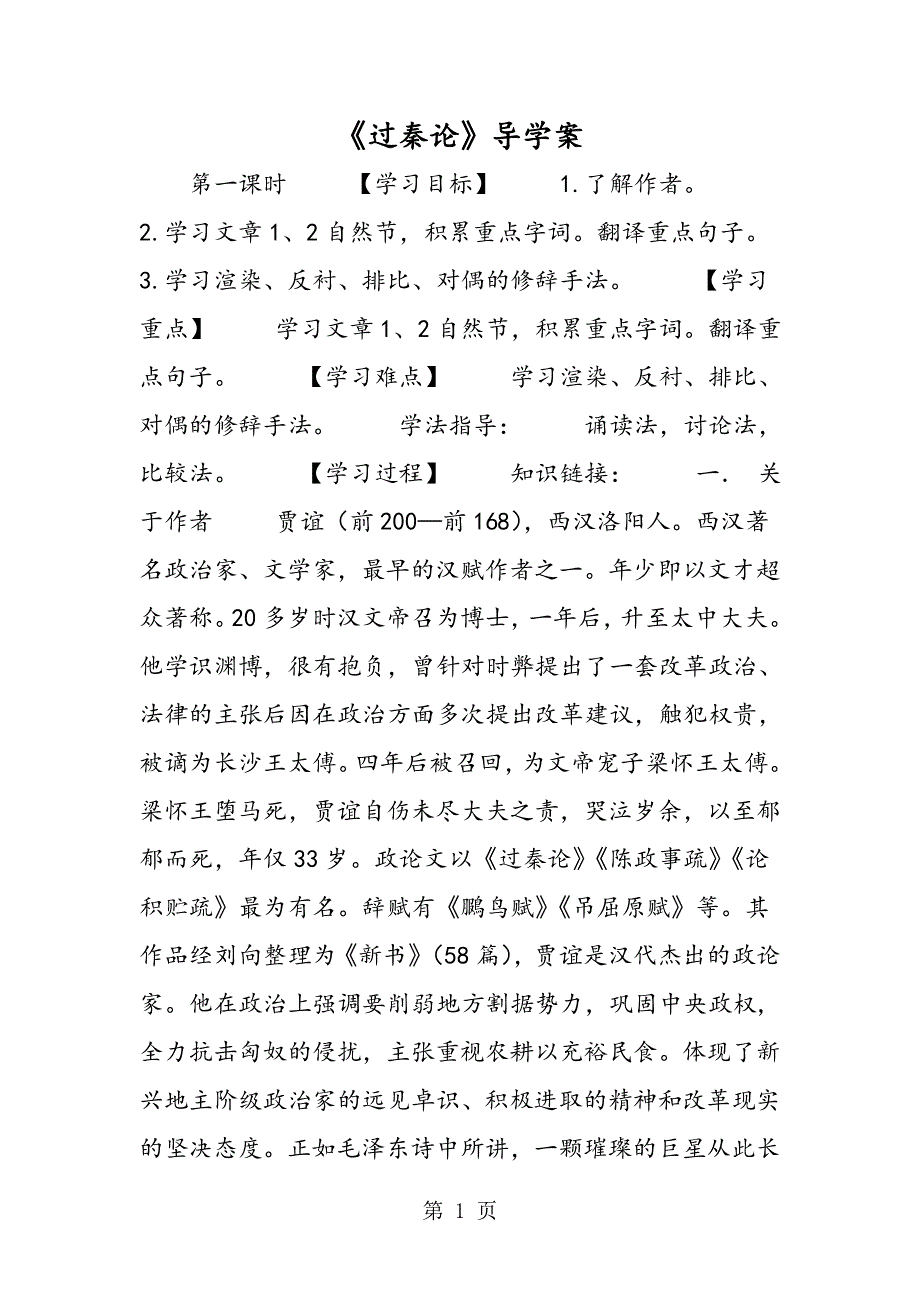 《过秦论》导学案
第一课时 【学习目标】 1.了解作者。
2.学习文章1、2自然节，积累重点字词。翻译重点句子。
3.学习渲染、反衬、排比、对偶的修辞手法。 【学习
重点】 学习文章1、2自然节，积累重点字词。翻译重
点句子。 【学习难点】 学习渲染、反衬、排比、
对偶的修辞手法。 学法指导： 诵读法，讨论法，
比较法。 【学习过程】 知识链接： 一． 关
于作者 贾谊（前200—前168），西汉洛阳人。西汉著
名政治家、文学家，最早的汉赋作者之一。年少即以文才超
众著称。20多岁时汉文帝召为博士，一年后，升至太中大夫。
他学识渊博，很有抱负，曾针对时弊提出了一套改革政治、
法律的主张后因在政治方面多次提出改革建议，触犯权贵，
被谪为长沙王太傅。四年后被召回，为文帝宠子梁怀王太傅。
梁怀王堕马死，贾谊自伤未尽大夫之责，哭泣岁余，以至郁
郁而死，年仅33岁。政论文以《过秦论》《陈政事疏》《论
积贮疏》最为有名。辞赋有《鵩鸟赋》《吊屈原赋》等。其
作品经刘向整理为《新书》（58篇），贾谊是汉代杰出的政论
家。他在政治上强调要削弱地方割据势力，巩固中央政权，
全力抗击匈奴的侵扰，主张重视农耕以充裕民食。体现了新
兴地主阶级政治家的远见卓识、积极进取的精神和改革现实
的坚决态度。正如毛泽东诗中所讲，一颗璀璨的巨星从此长
第 1 页